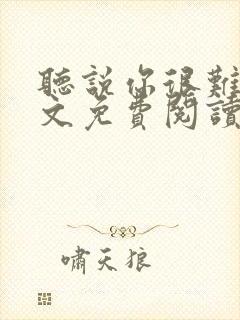 聽說你很難
文免費閱讀
嘯天狼